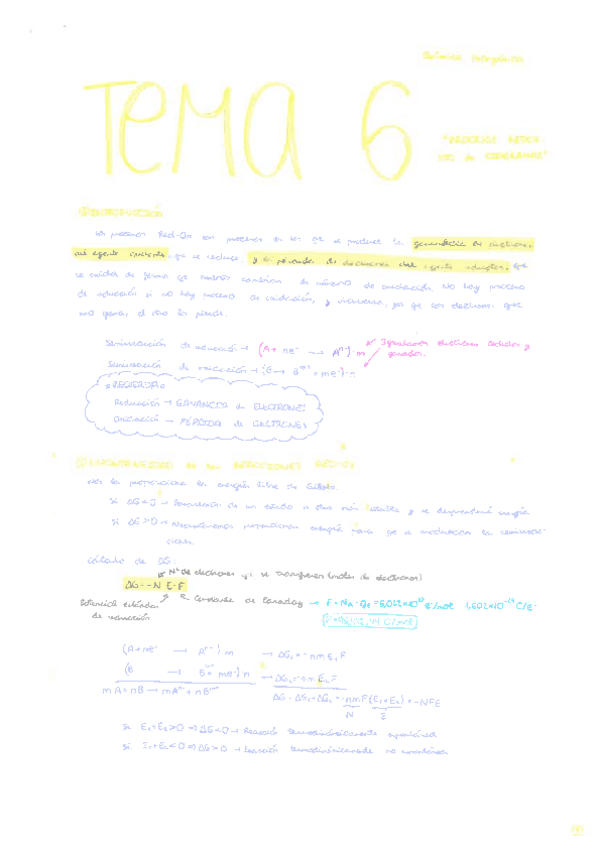 Química Inorgánica
TEMA 6
"PROCESOS REDOX
Los procesos Red-Ox son procesos en los que se produce la ganancia de electrones
del agente oxidante, que se reduce, y la pérdida de electrones del agente reductor, que
se oxida de forma que ambos cambian su número de oxidación. No hay proceso
de reducción si no hay proceso de oxidación, y viceversa, ya que los electrones que
uno gana, el otro los pierde.
Semirreacción de reducción → (A + ne⁻ → Aⁿ⁻)·m Igualamos electrones cedidos y
ganados.
Semirreacción de oxidación → (B → Bᵐ⁺ + me⁻)·n
RECUERDA:
Reducción → GANANCIA de ELECTRONES
Oxidación → PÉRDIDA de ELECTRONES
ESPONTANEIDAD de las REACCIONES RED-OX
Nos la proporciona la energía libre de Gibbs.
Si ΔG<0 → de un estado a otro más estable y se desprenderá energía
Si ΔG>0 → proporcionar energía para que se produzca la
Cálculo de ΔG:
Nº de electrones que se transfieren (moles de electrones)
ΔG = -N·E·F
Potencial estándar Constante de Faraday → F = NA·Qe = 6,022×10²³ e⁻/mol · 1,602×10⁻¹⁹ C/e⁻
de reducción
(A + ne⁻ → Aⁿ⁻)·m → ΔG₁ = -nmE₁F
(B → Bᵐ⁺ + me⁻)·n → ΔG₂ = -nmE₂F
mA + nB → mAⁿ⁻ + nBᵐ⁺ ΔG = ΔG₁ + ΔG₂ = -nmF(E₁+E₂) = -NFE
N E
Si E₁+E₂>0 ⇒ ΔG<0 → Reacción termodinámicamente espontánea
Si E₁+E₂<0 ⇒ ΔG>0 → Reacción termodinámicamente no espontánea